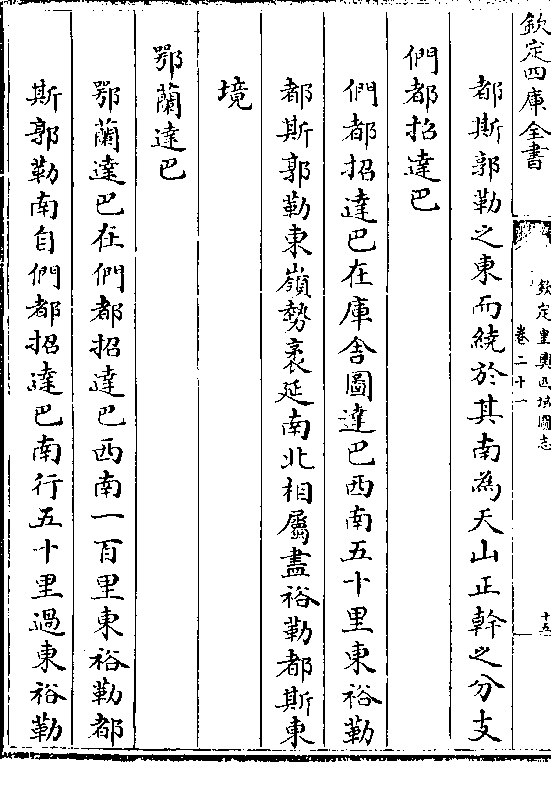 欽定四庫全書
欽定皇輿西域圖志
卷二十一
十五
都斯郭勒之東而繞於其南為天山正幹之分支
們都招達巴
們都招達巴在庫舍圖達巴西南五十里東裕勒
都斯郭勒東嶺勢袤延南北相屬盡裕勒都斯東
境
鄂蘭達巴
鄂蘭達巴在們都招達巴西南一百里東裕勒都
斯郭勒南自們都招達巴南行五十里過東裕勒